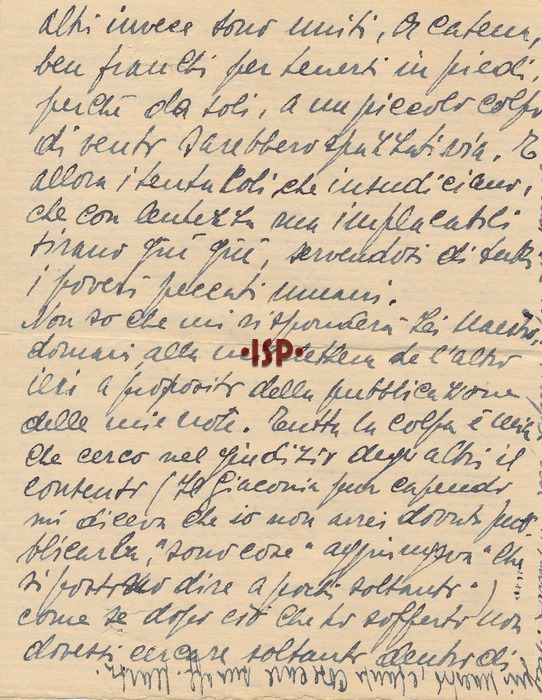 altri invece sono uniti, a catena,
ben franchi per tenersi in piedi,
perché da soli, a un piccolo colpo
di vento sarebbero spazzati via. E
allora i tentacoli che insudiciano,
che con lentezza ma implacabili
tirano giù giù, servendosi di tutti
i poveri peccati umani.
Non so che mi risponderà Lei Maestro,
domani alla mia lettera de l'altro
ieri a proposito della pubblicazione
delle mie note. Tutta la colpa è mia
che cerco nel giudizio degli altri il
contento (La Giaconia pur capendo
mi diceva che io non avrei dovuto pub-
blicarla, "sono cose" aggiungeva "che
si possono dire a pochi soltanto")
come se dopo ciò che ho sofferto non
dovessi cercare soltanto dentro di
·ISP·